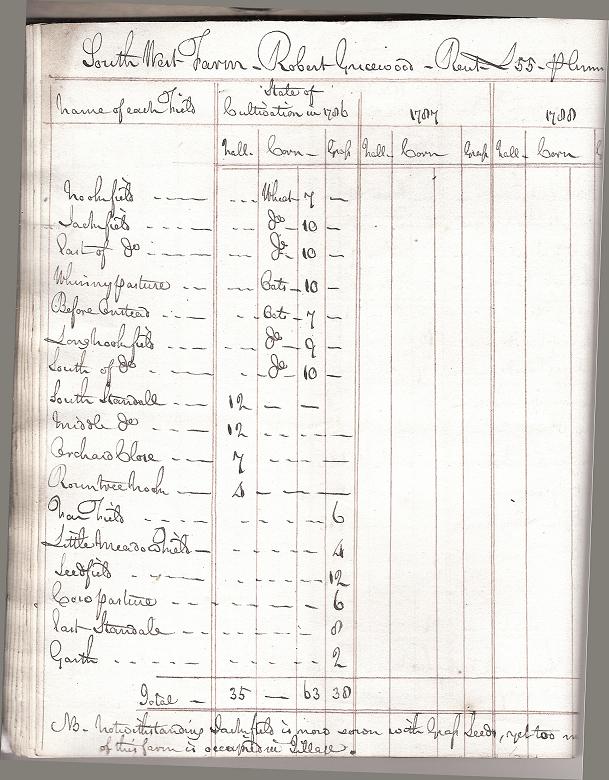 South West Farm - Robert Gricewood - Rent £55 - P Ann
Name of each Field State of Cultivation in 1786 1787 1788
Fall. Corn - Graſs Fall. Corn Graſs Fall. Corn
Nookfield Wheat 7
Jackfield Do 10
East of Do Do 10
Whinny pasture Oats 10
Before Onstead Oats 7
Longnookfield Do 9
South of Do Do 10
South Standale 12
Middle Do 12
Orchard Close 7
Rountree Nook 4
Field 6
Little Meadow Field 4
Seedfield 12
Cow pasture 6
East Standale 8
Garth 2
Total 35 63 38
NB - Notwithstanding Jackfield is now sown with Graſs Seeds, yet too
of this farm is occupied in Tillage.